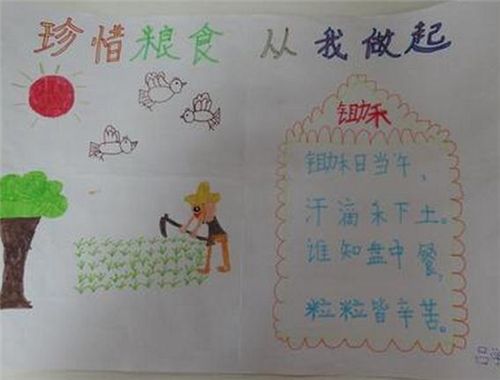 珍惜粮食 从我做起
锄禾
锄禾日当午，
汗滴禾下土。
谁知盘中餐，
粒粒皆辛苦。
吕